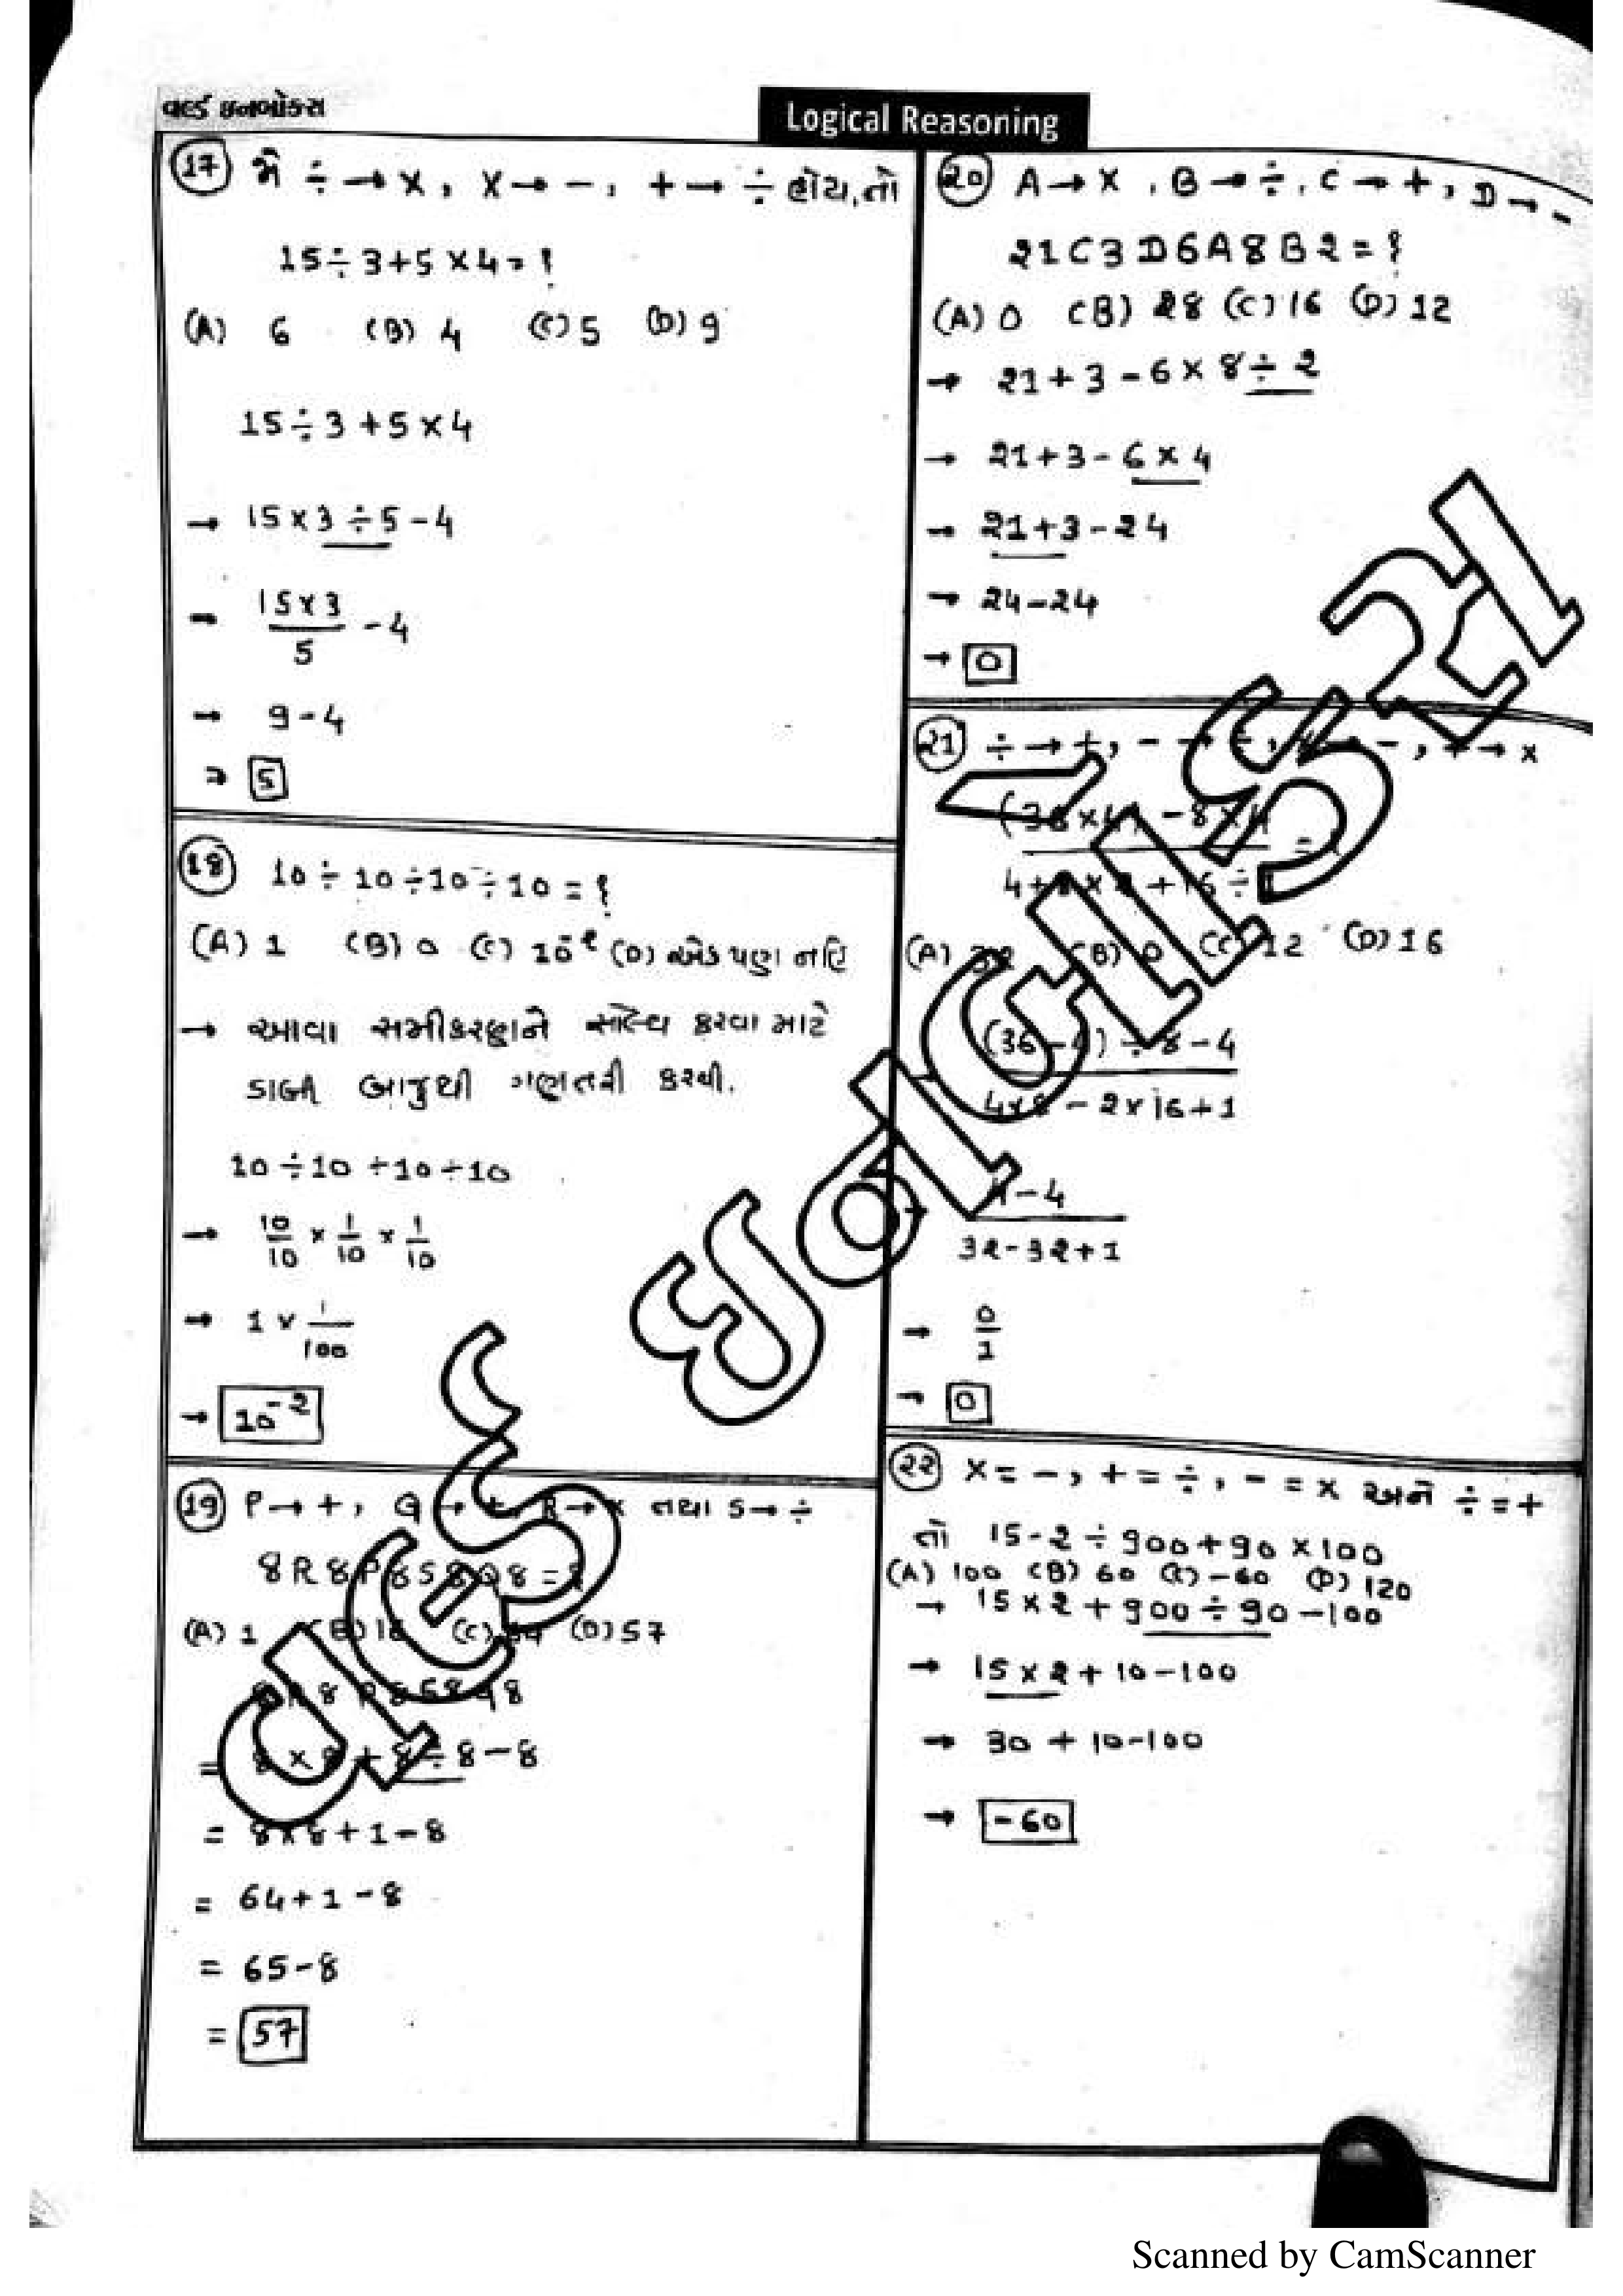 વર્લ્ડ ઇનબોક્સ
Logical Reasoning
(17) જો ÷ → ×, × → -, + → ÷ હોય, તો
15 ÷ 3 + 5 × 4 = ?
(A) 6 (B) 4 (C) 5 (D) 9
15 ÷ 3 + 5 × 4
→ 15 × 3 ÷ 5 - 4
→ 15 × 3 / 5 - 4
→ 9 - 4
→ 5
(18) 10 ÷ 10 ÷ 10 ÷ 10 = ?
(A) 1 (B) 0 (C) 10⁻² (D) એક પણ નહિ
→ આવા સમીકરણને સોલ્વ કરવા માટે
ડાબી બાજુથી ગણતરી કરવી.
10 ÷ 10 ÷ 10 ÷ 10
→ 10/10 × 1/10 × 1/10
→ 1 × 1/100
→ 10⁻²
(19) P → +, Q → R → × તથા S → ÷
8 R 8 P 8 S 8 Q 8 = ?
(A) 1 (B) 16 (C) (D) 57
8 R 8 P 8 S 8 Q 8
= 8 × 8 + 8 ÷ 8 - 8
= 8 × 8 + 1 - 8
= 64 + 1 - 8
= 65 - 8
= 57
(20) A → ×, B → ÷, C → +, D → -
21 C 3 D 6 A 8 B 2 = ?
(A) 0 (B) 28 (C) 16 (D) 12
→ 21 + 3 - 6 × 8 ÷ 2
→ 21 + 3 - 6 × 4
→ 21 + 3 - 24
→ 24 - 24
→ 0
(21) ÷ → +, - → ÷, × → -, + → ×
(36 × 4) - 8 × 4
4 + 8 × 2 + 16 ÷ 1
(A) 32 (B) 0 (C) 12 (D) 16
(36 - 4) ÷ 8 - 4
4 × 8 - 2 × 16 + 1
→ 4 - 4
32 - 32 + 1
→ 0/1
→ 0
(22) × = -, + = ÷, - = × અને ÷ = +
તો 15 - 2 ÷ 900 + 90 × 100
(A) 100 (B) 60 (C) -60 (D) 120
→ 15 × 2 + 900 ÷ 90 - 100
→ 15 × 2 + 10 - 100
→ 30 + 10 - 100
→ -60
Scanned by CamScanner